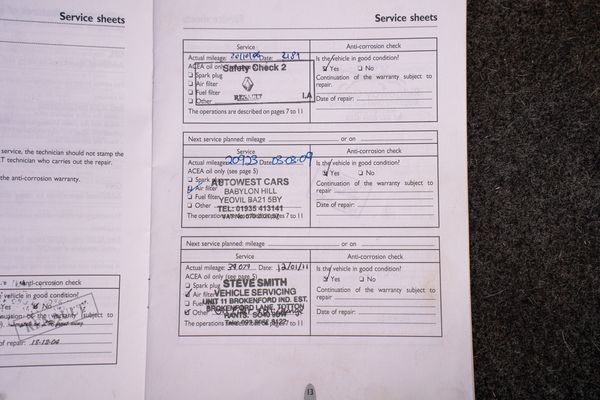 Service sheets
service, the technician should not stamp the
T technician who carries out the repair.
the anti-corrosion warranty.
Anti-corrosion check
vehicle in good condition?
Yes No
warranty subject to
of repair: 18-12-04
Service sheets
Service
Anti-corrosion check
Actual mileage: Date: 2189
Is the vehicle in good condition?
ACEA oil only
Yes No
Safety Check 2
Spark plug
Continuation of the warranty subject to
Air filter
repair.
Fuel filter
Other
RENAULT I.A
Date of repair:
The operations are described on pages 7 to 11
Next service planned: mileage or on
Service
Anti-corrosion check
Actual mileage: 20923 Date: 03.03.09
Is the vehicle in good condition?
ACEA oil only (see page 5)
Yes No
Spark plug
AUTOWEST CARS
Continuation of the warranty subject to
Air filter
BABYLON HILL
repair.
Fuel filter
YEOVIL BA21 5BY
Other
TEL: 01935 413141
Date of repair:
The operations 7 to 11
Next service planned: mileage or on
Service
Anti-corrosion check
Actual mileage: 39,079 Date: 12/01/11
Is the vehicle in good condition?
ACEA oil only (see page 5)
Yes No
Spark plug
STEVE SMITH
Continuation of the warranty subject to
Air filter
VEHICLE SERVICING
repair.
UNIT 11 BROKENFORD IND. EST.
BROKENFORD LANE, TOTTON
Other
HANTS.
Date of repair:
The operations pages 7 to 11
13